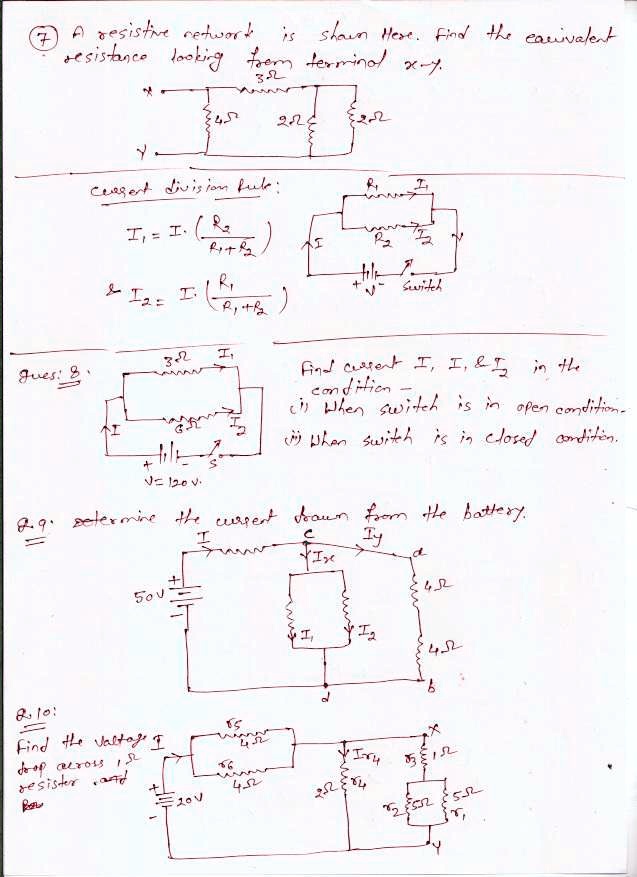 7 A resistive network is shown Here. Find the equivalent
resistance looking from terminal x-y.
3Ω
x
4Ω 2Ω 2Ω
Y
current division Rule:
R1 I1
I1 = I. (R2 / R1+R2)
I R2 I2
& I2 = I. (R1 / R1+R2)
+ V - switch
Ques: 8.
3Ω I1
Find current I, I1 & I2 in the
condition -
(i) When switch is in open condition.
I 6Ω I2
(ii) When switch is in closed condition.
+ - S
V = 120 V.
Q.9. Determine the current drawn from the battery.
I C Iy
Ix d
50V + -
4Ω
I1 I2
4Ω
d b
Q.10:
Find the Valtage
drop accross 1Ω
resister
I
r5
4Ω
r6
4Ω
+ 20V -
x
Ir4 r3 1Ω
2Ω r4
r2 5Ω 5Ω r1
Y